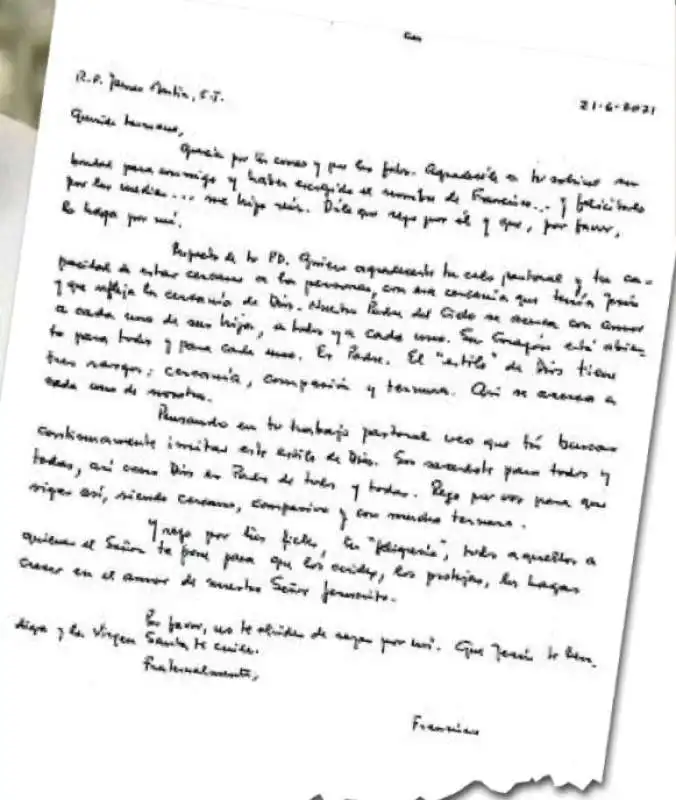 R.P. James Martin, S.J.
21-6-2021
Querido hermano,
Gracias por tu correo y por las fotos. Agradecele a tu sobrino su
bondad para conmigo y haber escogido el nombre de Francisco... y felicitarlo
por las medias... me hizo reír. Dile que rezo por él y que, por favor,
lo haga por mí.
Respecto de tu PD. Quiero agradecerte tu celo pastoral y tu ca-
pacidad de estar cercano a las personas, con esa cercanía que tenía Jesús
y que refleja la cercanía de Dios. Nuestro Padre del Cielo se acerca con amor
a cada uno de sus hijos, a todos y a cada uno. Su Corazón está abier-
to para todos y para cada uno. Es Padre. El "estilo" de Dios tiene
tres rasgos: cercanía, compasión y ternura. Así se acerca a
cada uno de nosotros.
Pensando en tu trabajo pastoral veo que tú buscas
continuamente imitar este estilo de Dios. Sos sacerdote para todos y
todas, así como Dios es Padre de todos y todas. Rezo por vos para que
sigas así, siendo cercano, compasivo y con mucha ternura.
Y rezo por tus fieles, tus "feligreses", todos aquellos a
quienes el Señor te pone para que los cuides, los protejas, los hagas
crecer en el amor de nuestro Señor Jesucristo.
Por favor, no te olvides de rezar por mí. Que Jesús te ben-
diga y la Virgen Santa te cuide.
Fraternalmente,
Francisco